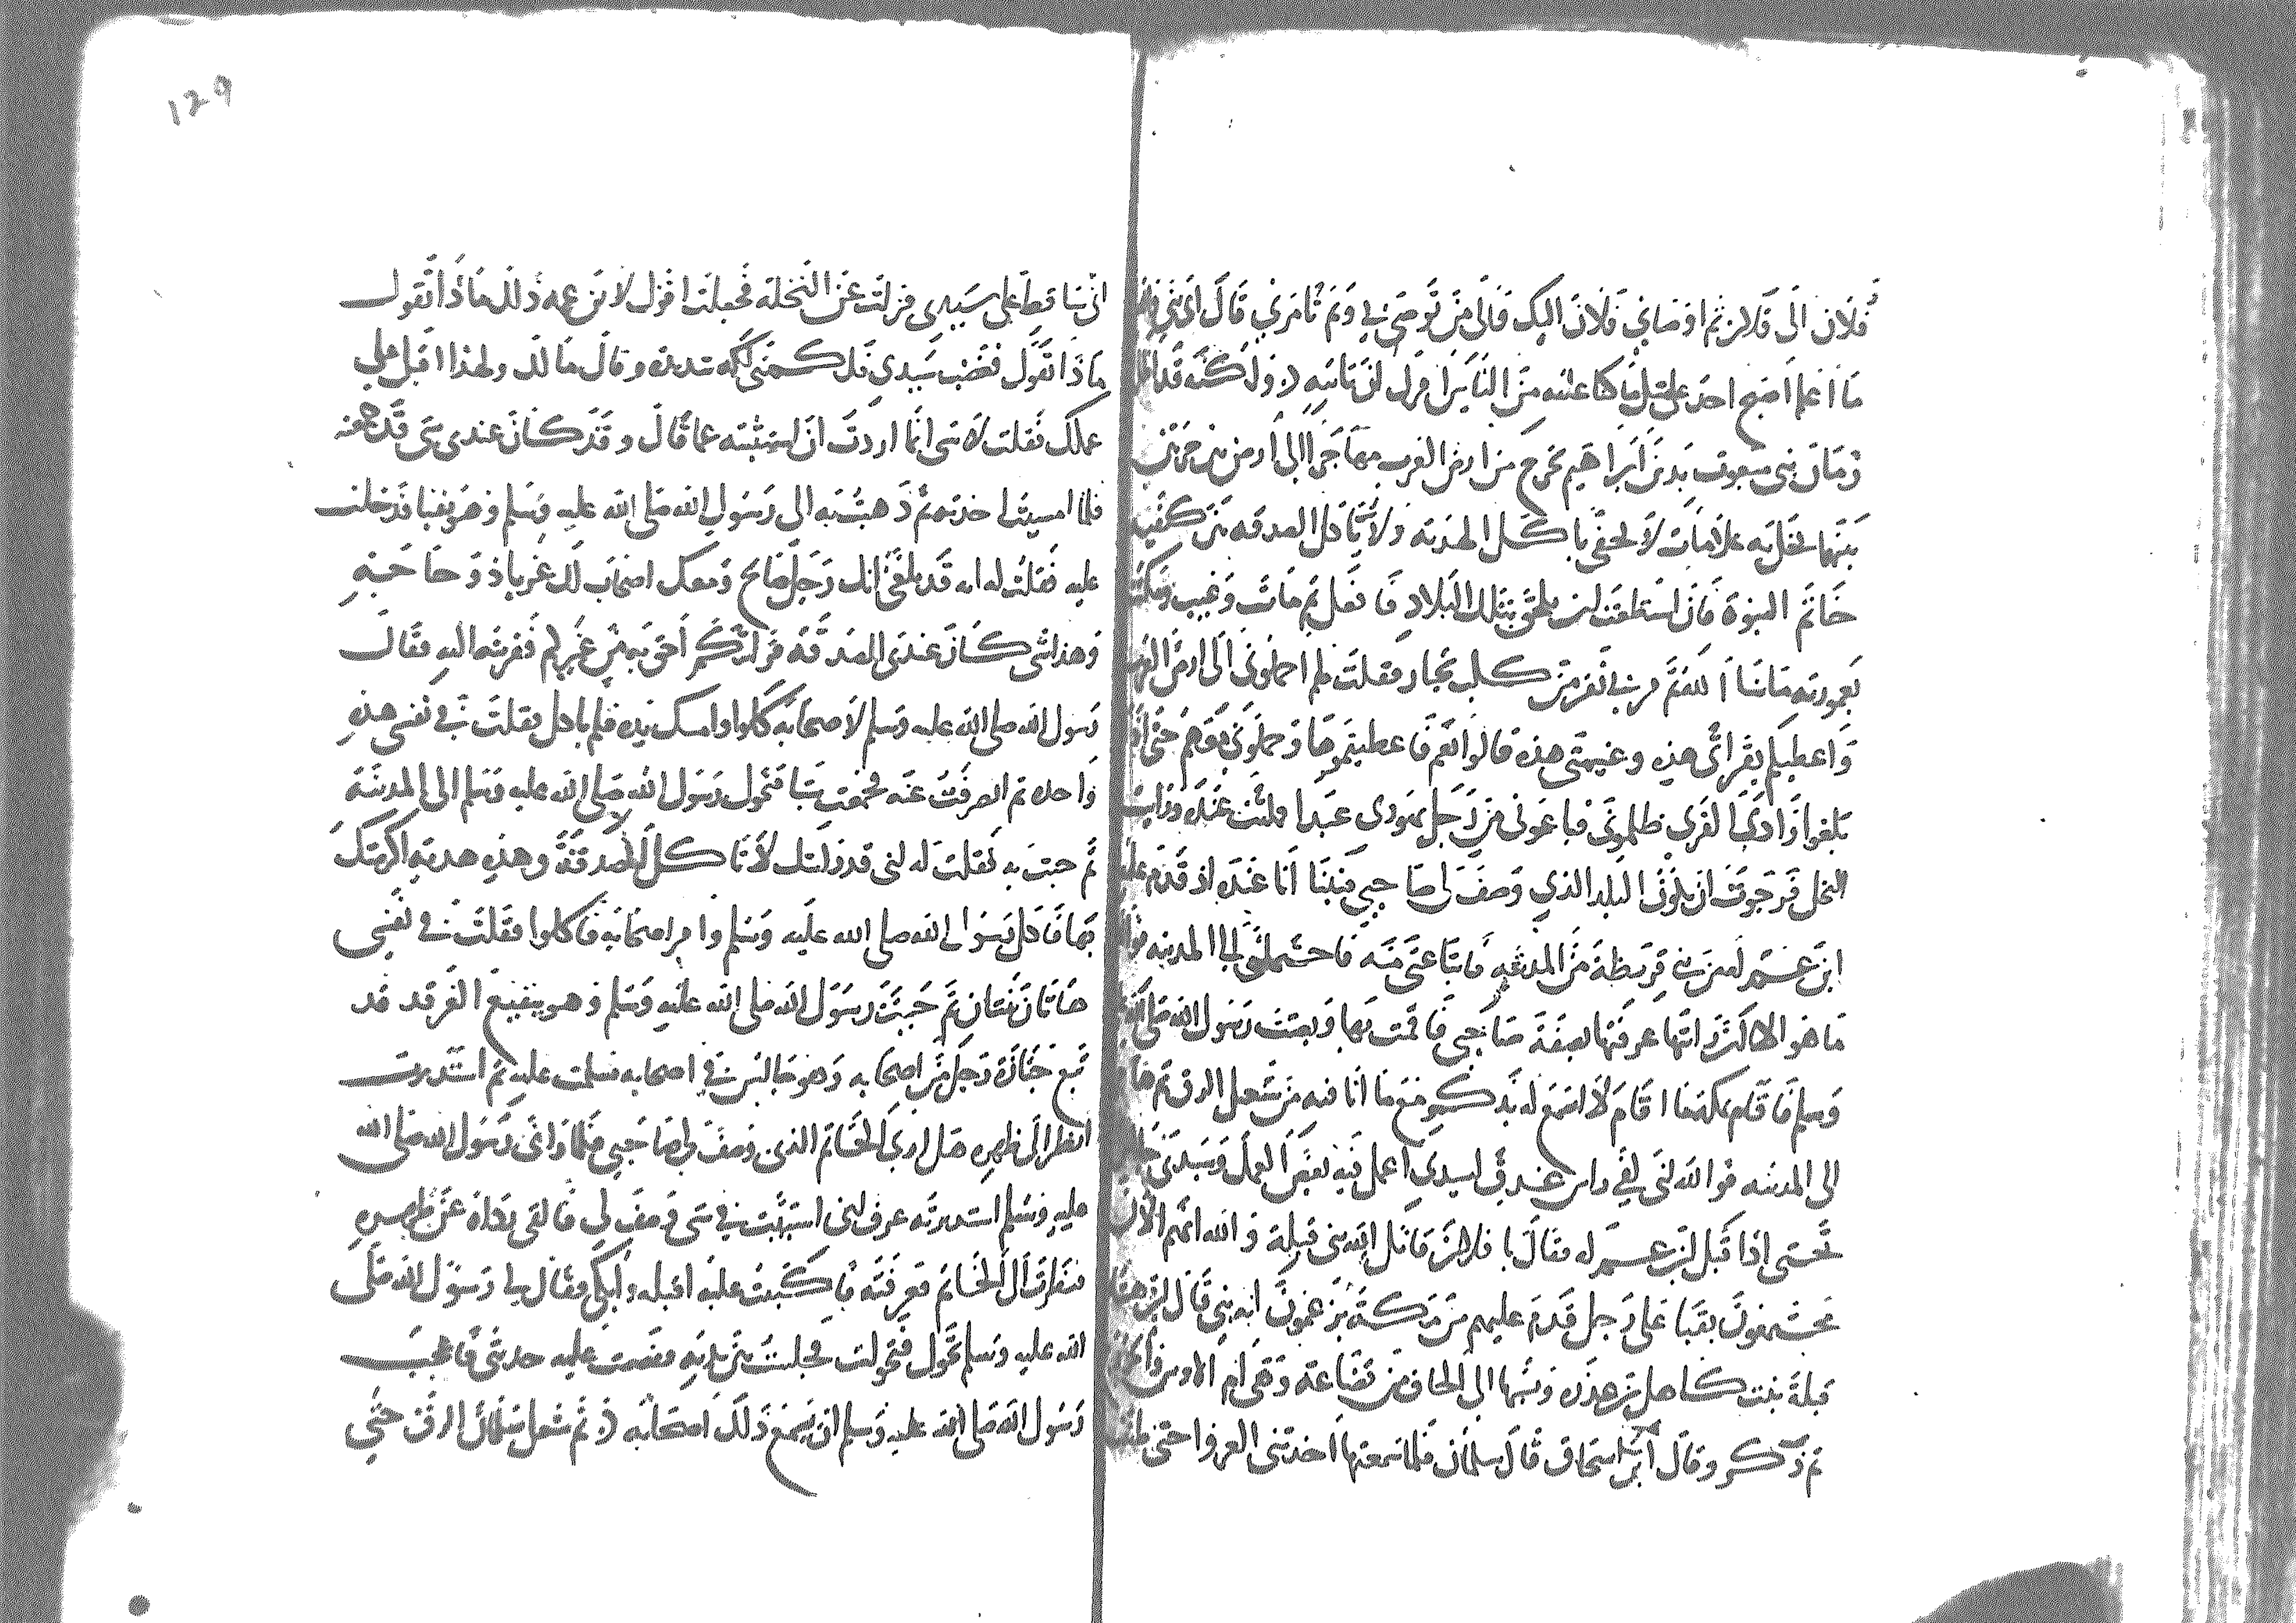 فلان الى فلان ثم اوصاني فلان اليك فالى من توصي بي وبم تامرني قال اي بني والله
ما اعلم اصبح احد على مثل ما كنا عليه من الناس امرك ان تاتيه ولكنه قد اظل
زمان نبي مبعوث بدين ابراهيم يخرج من ارض العرب مهاجرا الى ارض بين حرتين
بينهما نخل به علامات لا تخفى ياكل الهدية ولا ياكل الصدقة بين كتفيه
خاتم النبوة فان استطعت ان تلحق بتلك البلاد فافعل ثم مات وغيب ومكثت
بعمورية ما شا الله ثم مر بي نفر من كلب تجار فقلت لهم احملوني الى ارض العرب
واعطيكم بقراتي هذه وغنيمتي هذه قالوا نعم فاعطيتموها وحملوني معهم حتى اذا
بلغوا وادي القرى ظلموني فباعوني من رجل يهودي عبدا فكنت عنده ورايت
النخل فرجوت ان يكون البلد الذي وصف لي صاحبي فبينا انا عنده اذ قدم عليه
ابن عم له من بني قريظة من المدينة فابتاعني منه فاحتملني الى المدينة فوالله
ما هو الا ان رايتها عرفتها بصفة صاحبي فاقمت بها وبعث رسول الله صلى الله
وسلم فاقام بمكة ما اقام لا اسمع له بذكر مع ما انا فيه من شغل الرق ثم هاجر
الى المدينة فوالله اني لفي راس عذق لسيدي اعمل فيه بعض العمل وسيدي جالس
تحتي اذا قبل ابن عم له فقال يا فلان قاتل الله بني قيلة والله انهم الان
مجتمعون بقبا على رجل قدم عليهم من مكة يزعمون انه نبي قال ابن هشام
قيلة بنت كاهل بن عذرة ونسبها الى الحاف من قضاعة وهي ام الاوس والخزرج
ثم ذكر وقال ابن اسحاق قال سلمان فلما سمعتها اخذتني العروا حتى ظننت
129
اني ساقط على سيدي فنزلت عن النخلة فجعلت اقول لابن عمه ذلك ماذا تقول
ماذا تقول فغضب سيدي فلكمني لكمة شديدة وقال ما لك ولهذا اقبل على
عملك فقلت لا شي انما اردت ان استثبته عما قال وقد كان عندي شي قد جمعته
فلما امسيت اخذته ثم ذهبت به الى رسول الله صلى الله عليه وسلم وهو بقبا فدخلت
عليه فقلت له انه قد بلغني انك رجل صالح ومعك اصحاب لك غربا ذو حاجة
وهذا شي كان عندي للصدقة فرايتكم احق به من غيركم فقربته اليه فقال
رسول الله صلى الله عليه وسلم لاصحابه كلوا وامسك يده فلم ياكل فقلت في نفسي هذه
واحدة ثم انصرفت عنه فجمعت شيا فتحول رسول الله صلى الله عليه وسلم الى المدينة
ثم جيت به فقلت له اني قد رايتك لا تاكل الصدقة وهذه هدية اكرمتك
بها فاكل رسول الله صلى الله عليه وسلم وامر اصحابه فاكلوا فقلت في نفسي
هاتان ثنتان ثم جيت رسول الله صلى الله عليه وسلم وهو ببقيع الغرقد قد
تبع جنازة رجل من اصحابه وهو جالس في اصحابه فسلمت عليه ثم استدبرت
انظر الى ظهره هل ارى الخاتم الذي وصف لي صاحبي فلما راني رسول الله صلى الله
عليه وسلم استدبرته عرف اني استثبت في شي وصف لي فالقى رداه عن ظهره
فنظرت الى الخاتم فعرفته فاكببت عليه اقبله وابكي فقال لي رسول الله صلى
الله عليه وسلم تحول فتحولت فجلست بين يديه فقصصت عليه حديثي فاعجب
رسول الله صلى الله عليه وسلم ان يسمع ذلك اصحابه ثم شغل سلمان الرق حتى